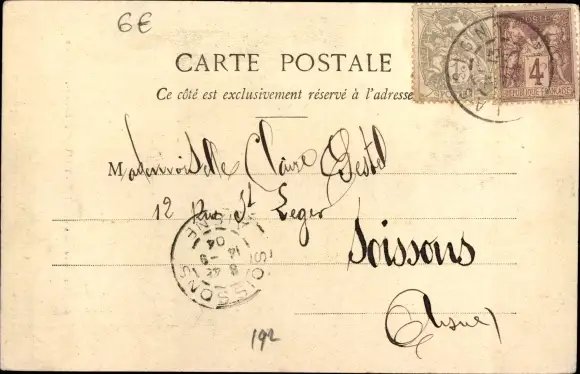 6€
CARTE POSTALE
Ce côté est exclusivement réservé à l'adresse
POSTE
4
REPUBLIQUE FRANÇAISE
Mademoiselle Claire Gestel
12 Rue St Leger
Soissons
(Aisne)
SOISSONS
AISNE
8 45
14 -9
04
192